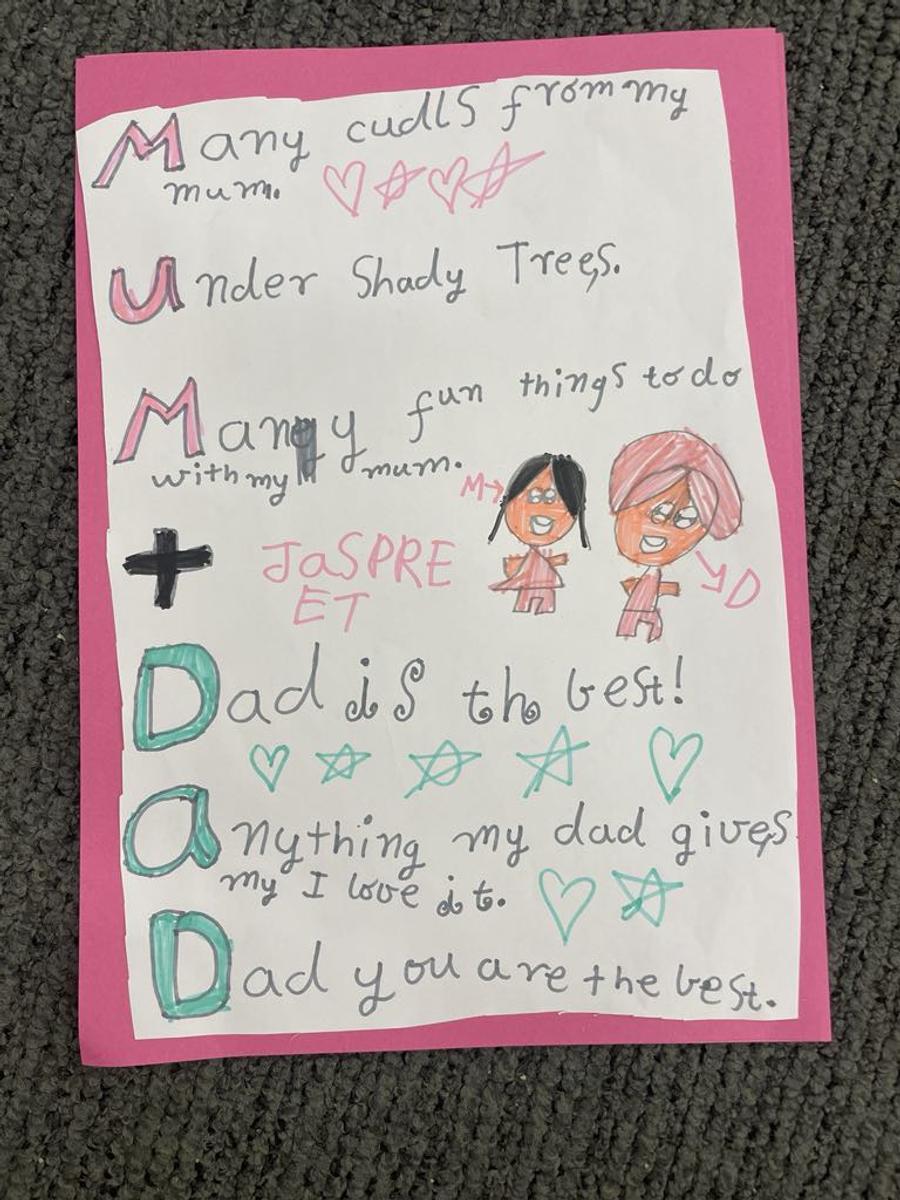 Many cudls from my
mum.
Under Shady Trees.
Many fun things to do
with my mum.
M
JaSPRE
ET
D
Dad is th best!
Anything my dad gives
my I love it.
Dad you are the best.